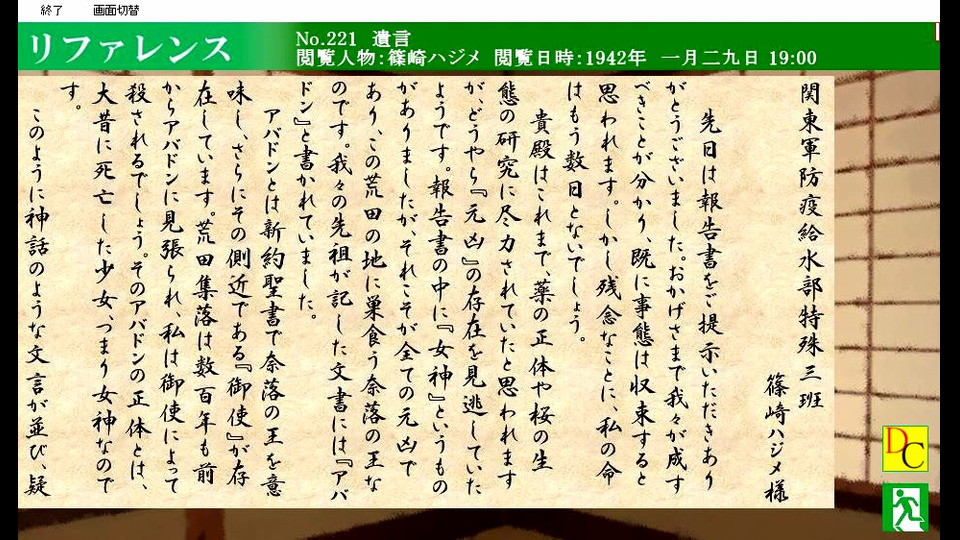 終了 画面切替
リファレンス
No.221 遺言
閲覧人物:篠崎ハジメ 閲覧日時:1942年 一月二九日 19:00
関東軍防疫給水部特殊三班
篠崎ハジメ様
先日は報告書をご提示いただきあり
がとうございました。おかげさまで我々が成す
べきことが分かり、既に事態は収束すると
思われます。しかし残念なことに、私の命
はもう数日とないでしょう。
貴殿はこれまで、薬の正体や桜の生
態の研究に尽力されていたと思われます
が、どうやら『元凶』の存在を見逃していた
ようです。報告書の中に『女神』というもの
がありましたが、それこそが全ての元凶で
あり、この荒田の地に巣食う奈落の王な
のです。我々の先祖が記した文書には『アバ
ドン』と書かれていました。
アバドンとは新約聖書で奈落の王を意
味し、さらにその側近である『御使』が存
在しています。荒田集落は数百年も前
からアバドンに見張られ、私は御使によって
殺されるでしょう。そのアバドンの正体とは、
大昔に死亡した少女、つまり女神なので
す。
このように神話のような文言が並び、疑
DC